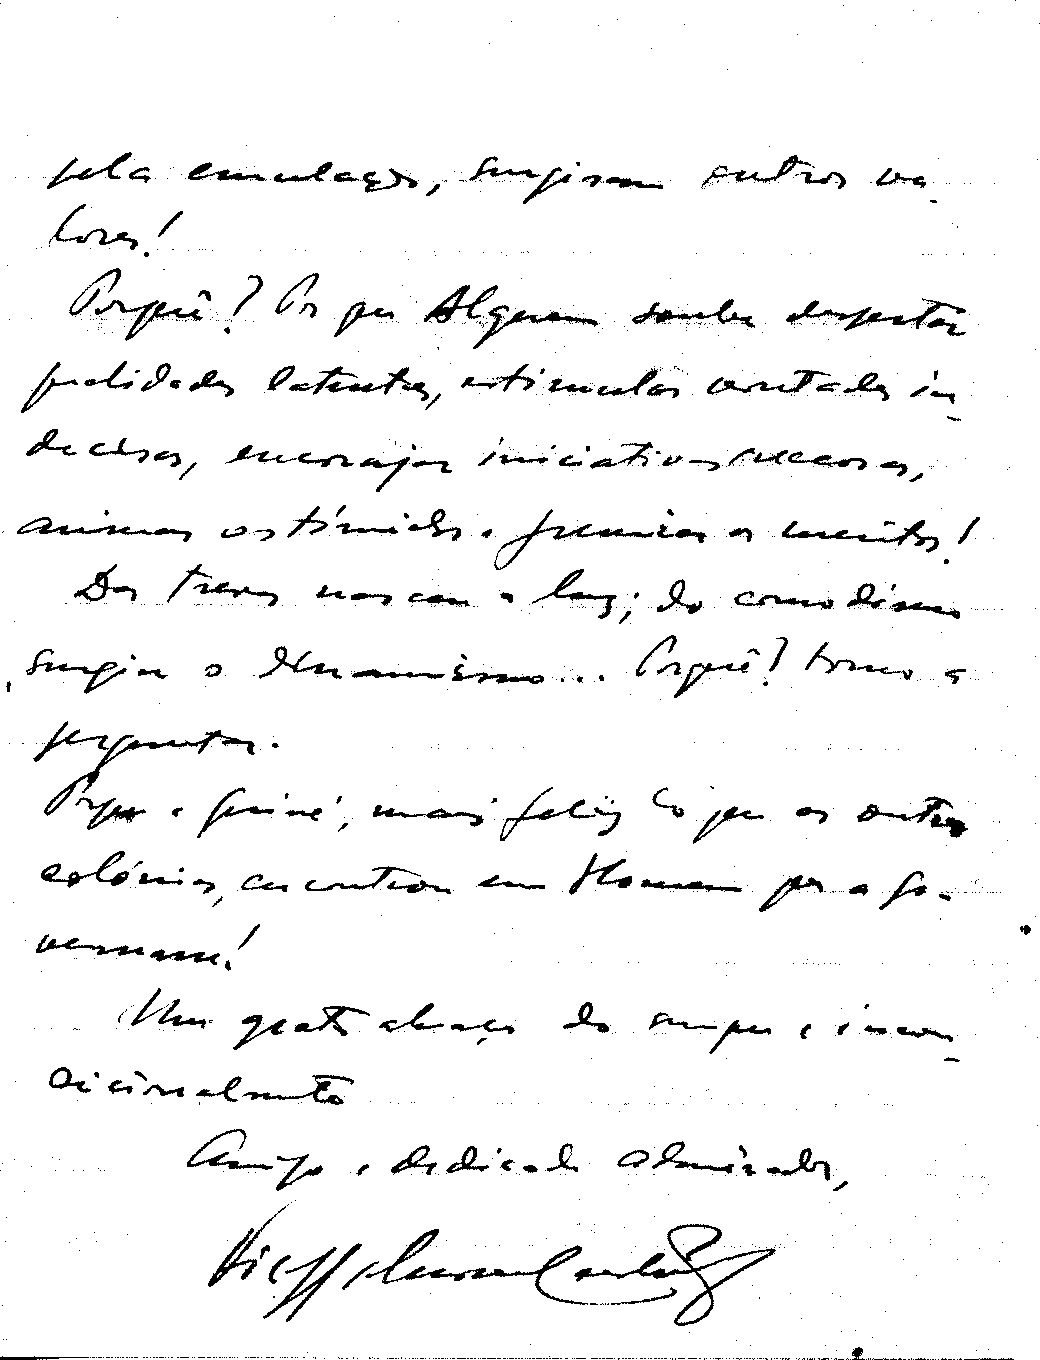 pela emulação, surgiram outros va-
lores!
Porquê? Por que Alguem soube despertar
qualidades latentes, estimular vontades in-
decisas, encorajar iniciativas
animar os tímidos e premiar os meritos!
Das trevas nasceu a luz; do comodismo
surgiu o dinamismo... Porquê? torno a
perguntar.
Porque a Guiné, mais feliz do que as outras
colónias, encontrou um Homem que a go-
vernasse!
Um grato abraço do sempre e incon-
dicionalmente
Amigo e dedicado admirador,